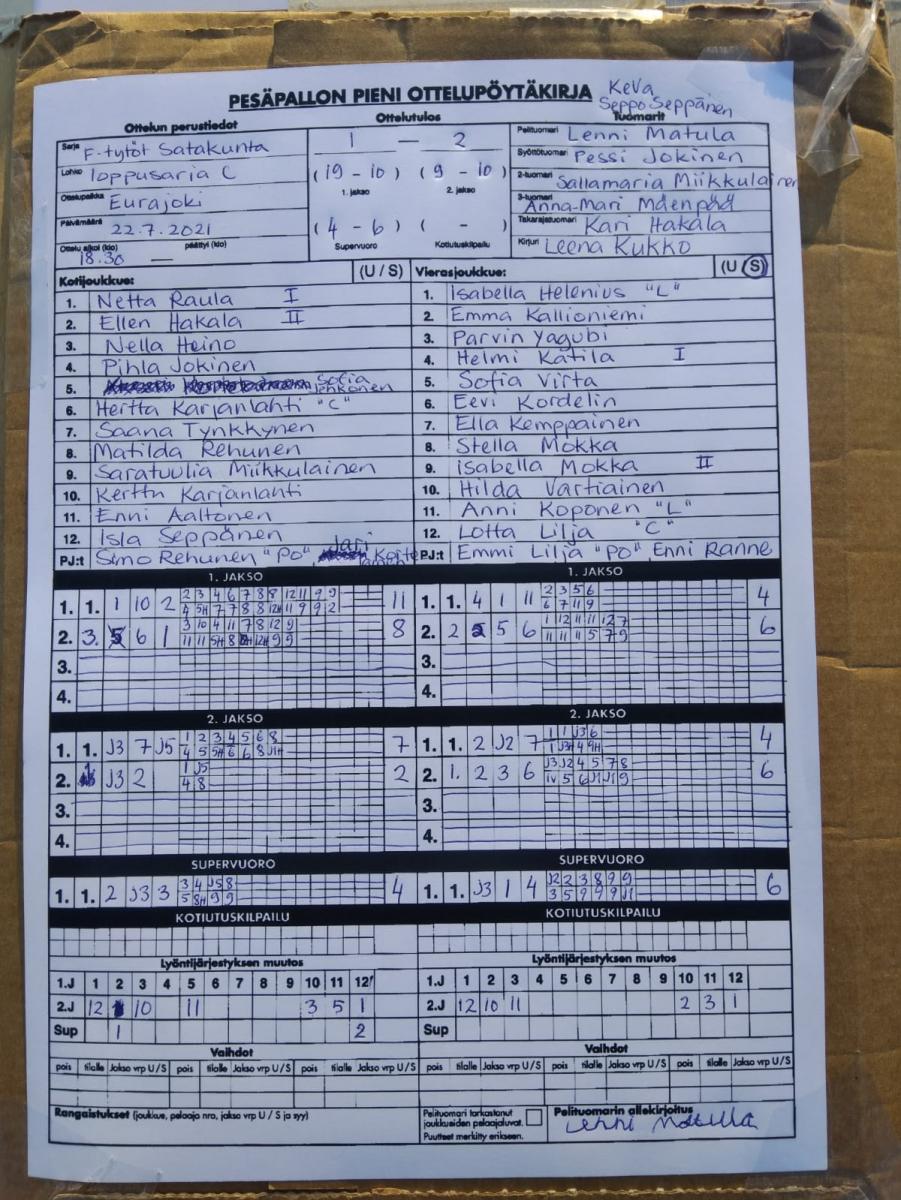 PESÄPALLON PIENI OTTELUPÖYTÄKIRJA
KeVa
Seppo Seppänen
Ottelun perustiedot
Sarja F-tytöt Satakunta
Lohko loppusarja C
Ottelupaikka Eurajoki
Päivämäärä 22.7.2021
Ottelu alkoi (klo) päättyi (klo)
18.30 —
Ottelutulos
1 — 2
(19 - 10) (9 - 10)
1. jakso 2. jakso
(4 - 6) ( - )
Supervuoro Kotiutuskilpailu
Tuomarit
Pelituomari Lenni Matula
Syöttötuomari Pessi Jokinen
2-tuomari Sallamaria Miikkulainen
3-tuomari Anna-Mari Mäenpää
Takarajatuomari Kari Hakala
Kirjuri Leena Kukko
Kotijoukkue: (U / S)
1. Netta Raula I
2. Ellen Hakala II
3. Nella Heino
4. Pihla Jokinen
5. Sofia
6. Hertta Karjanlahti "C"
7. Saana Tynkkynen
8. Matilda Rehunen
9. Saratuulia Miikkulainen
10. Kerttu Karjanlahti
11. Enni Aaltonen
12. Isla Seppänen
PJ:t Simo Rehunen "PO" Jari
Vierasjoukkue: (U / S)
1. Isabella Helenius "L"
2. Emma Kallioniemi
3. Parvin Yagubi
4. Helmi Katila I
5. Sofia Virta
6. Eevi Kordelin
7. Ella Kemppainen
8. Stella Mokka
9. Isabella Mokka II
10. Hilda Vartiainen
11. Anni Koponen "L"
12. Lotta Lilja "C"
PJ:t Emmi Lilja "PO" Enni Ranne
1. JAKSO
1. 1. 1 10 2 11
2. 3. 6 1 8
3.
4.
1. JAKSO
1. 1. 4 1 11 2 3 5 6 4
6 7 11 9
2. 2 5 6 1 12 11 11 12 7 6
11 11 11 5 7 9
3.
4.
2. JAKSO
1. 1. J3 7 J5 1 2 3 4 5 6 8 7
4 5 5H 6 6 8 J1H
2. J3 2 1 J5 2
4 8
3.
4.
2. JAKSO
1. 1. 2 J2 7 1 1 J3 6 4
1 J3H 4 9H
2. 1. 2 3 6 J3 J2 4 5 7 8 6
3.
4.
SUPERVUORO
1. 1. 2 J3 3 3 4 J5 8 4
5 8H 9 9
SUPERVUORO
1. 1. J3 1 4 J2 2 3 8 9 9 6
3 5 9 9 9 J1
KOTIUTUSKILPAILU
KOTIUTUSKILPAILU
Lyöntijärjestyksen muutos
1.J 1 2 3 4 5 6 7 8 9 10 11 12
2.J 12 10 11 3 5 1
Sup 1 2
Lyöntijärjestyksen muutos
1.J 1 2 3 4 5 6 7 8 9 10 11 12
2.J 12 10 11 2 3 1
Sup
Vaihdot
pois tilalle Jakso vrp U / S pois tilalle Jakso vrp U / S pois tilalle Jakso vrp U / S
Vaihdot
pois tilalle Jakso vrp U / S pois tilalle Jakso vrp U / S pois tilalle Jakso vrp U / S
Rangaistukset (joukkue, pelaaja nro, jakso vrp U / S ja syy)
Pelituomari tarkastanut
joukkueiden pelaajaluvat.
Puutteet merkitty erikseen.
Pelituomarin allekirjoitus
Lenni Matula